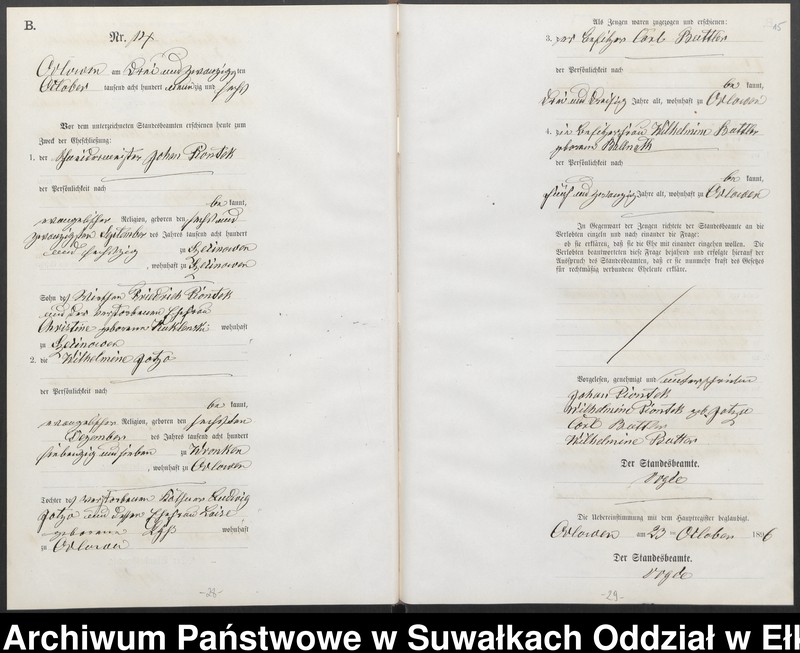 B.
Nr. 14
Orlowen am drei und zwanzigsten
October tausend acht hundert neunzig und sechs
Vor dem unterzeichneten Standesbeamten erschienen heute zum
Zweck der Eheschließung:
1. der Schneidermeister Johan Piontek
der Persönlichkeit nach
be kannt,
evangelischer Religion, geboren den sechs und
zwanzigsten September des Jahres tausend acht hundert
und sechszig zu
, wohnhaft zu
Sohn des Wirthen Friedrich Piontek
und der verstorbenen Ehefrau
Christine geborene wohnhaft
zu
2. die Wilhelmine Gotzo
der Persönlichkeit nach
be kannt,
evangelischer Religion, geboren den sechsten
Dezember des Jahres tausend acht hundert
siebenzig und sieben zu Wronken
, wohnhaft zu Orlowen
Tochter des verstorbenen Käthner Ludwig
Gotzo und dessen Ehefrau Luise
geborene wohnhaft
zu Orlowen
-28-
Als Zeugen waren zugezogen und erschienen:
3. der Besitzer Carl Buttler
der Persönlichkeit nach
be kannt,
drei und dreißig Jahre alt, wohnhaft zu Orlowen
4. die Besitzerfrau Wilhelmine Buttler
geborene
der Persönlichkeit nach
be kannt,
fünf und zwanzig Jahre alt, wohnhaft zu Orlowen
In Gegenwart der Zeugen richtete der Standesbeamte an die
Verlobten einzeln und nach einander die Frage:
ob sie erklären, daß sie die Ehe mit einander eingehen wollen. Die
Verlobten beantworteten diese Frage bejahend und erfolgte hierauf der
Ausspruch des Standesbeamten, daß er sie nunmehr kraft des Gesetzes
für rechtmäßig verbundene Eheleute erkläre.
Vorgelesen, genehmigt und unterschrieben
Johan Piontek
Wilhelmine Piontek geb. Gotzo
Carl Buttler
Wilhelmine Butler
Der Standesbeamte.
Vogle
Die Uebereinstimmung mit dem Hauptregister beglaubigt.
Orlowen am 23 ten October 1896
Der Standesbeamte.
Vogle
-29-
Archiwum Państwowe w Suwałkach Oddział w Ełk